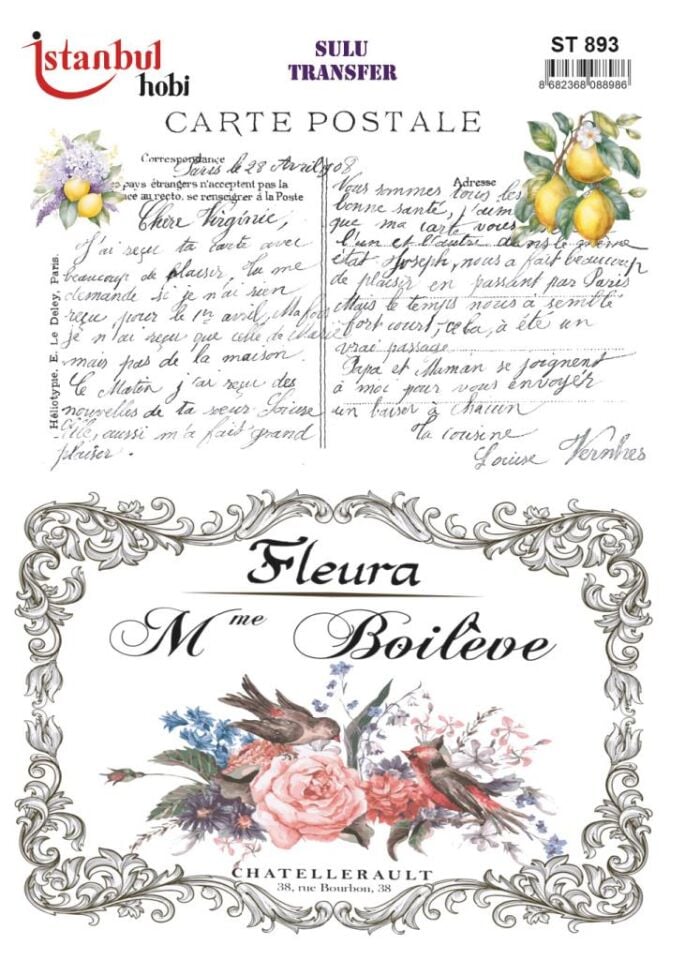 istanbul
hobi
SULU
TRANSFER
ST 893
8 682368 088986
CARTE POSTALE
Correspondance
Paris le 28 Avril 1908
pays étrangers n'acceptent pas la
au recto, se renseigner à la Poste
Chère Virginie,
J'ai reçu ta carte avec
beaucoup de plaisir. Tu me
demande si je n'ai rien
reçu pour le 1er avril, Ma foi
je n'ai reçu que celle de Marie
mais pas de la maison.
Ce Matin j'ai reçu des
nouvelles de ta sœur Louise
elle, aussi m'a fait grand
plaisir.
Héliotypie. E. Le Deley, Paris.
Adresse
Vous sommes tous les
bonne santé, j'aime
que ma carte vous
l'un et l'autre dans le même
état Joseph, nous a fait beaucoup
de plaisir en passant par Paris
Mais le temps nous à semblé
fort court, cela, à été un
vrai passage
Papa et Maman se joignent
à moi pour vous envoyér
un baiser à chacun
ta cousine
Louise Vernhes
Fleura
Mme Boilève
CHATELLERAULT
38, rue Bourbon, 38